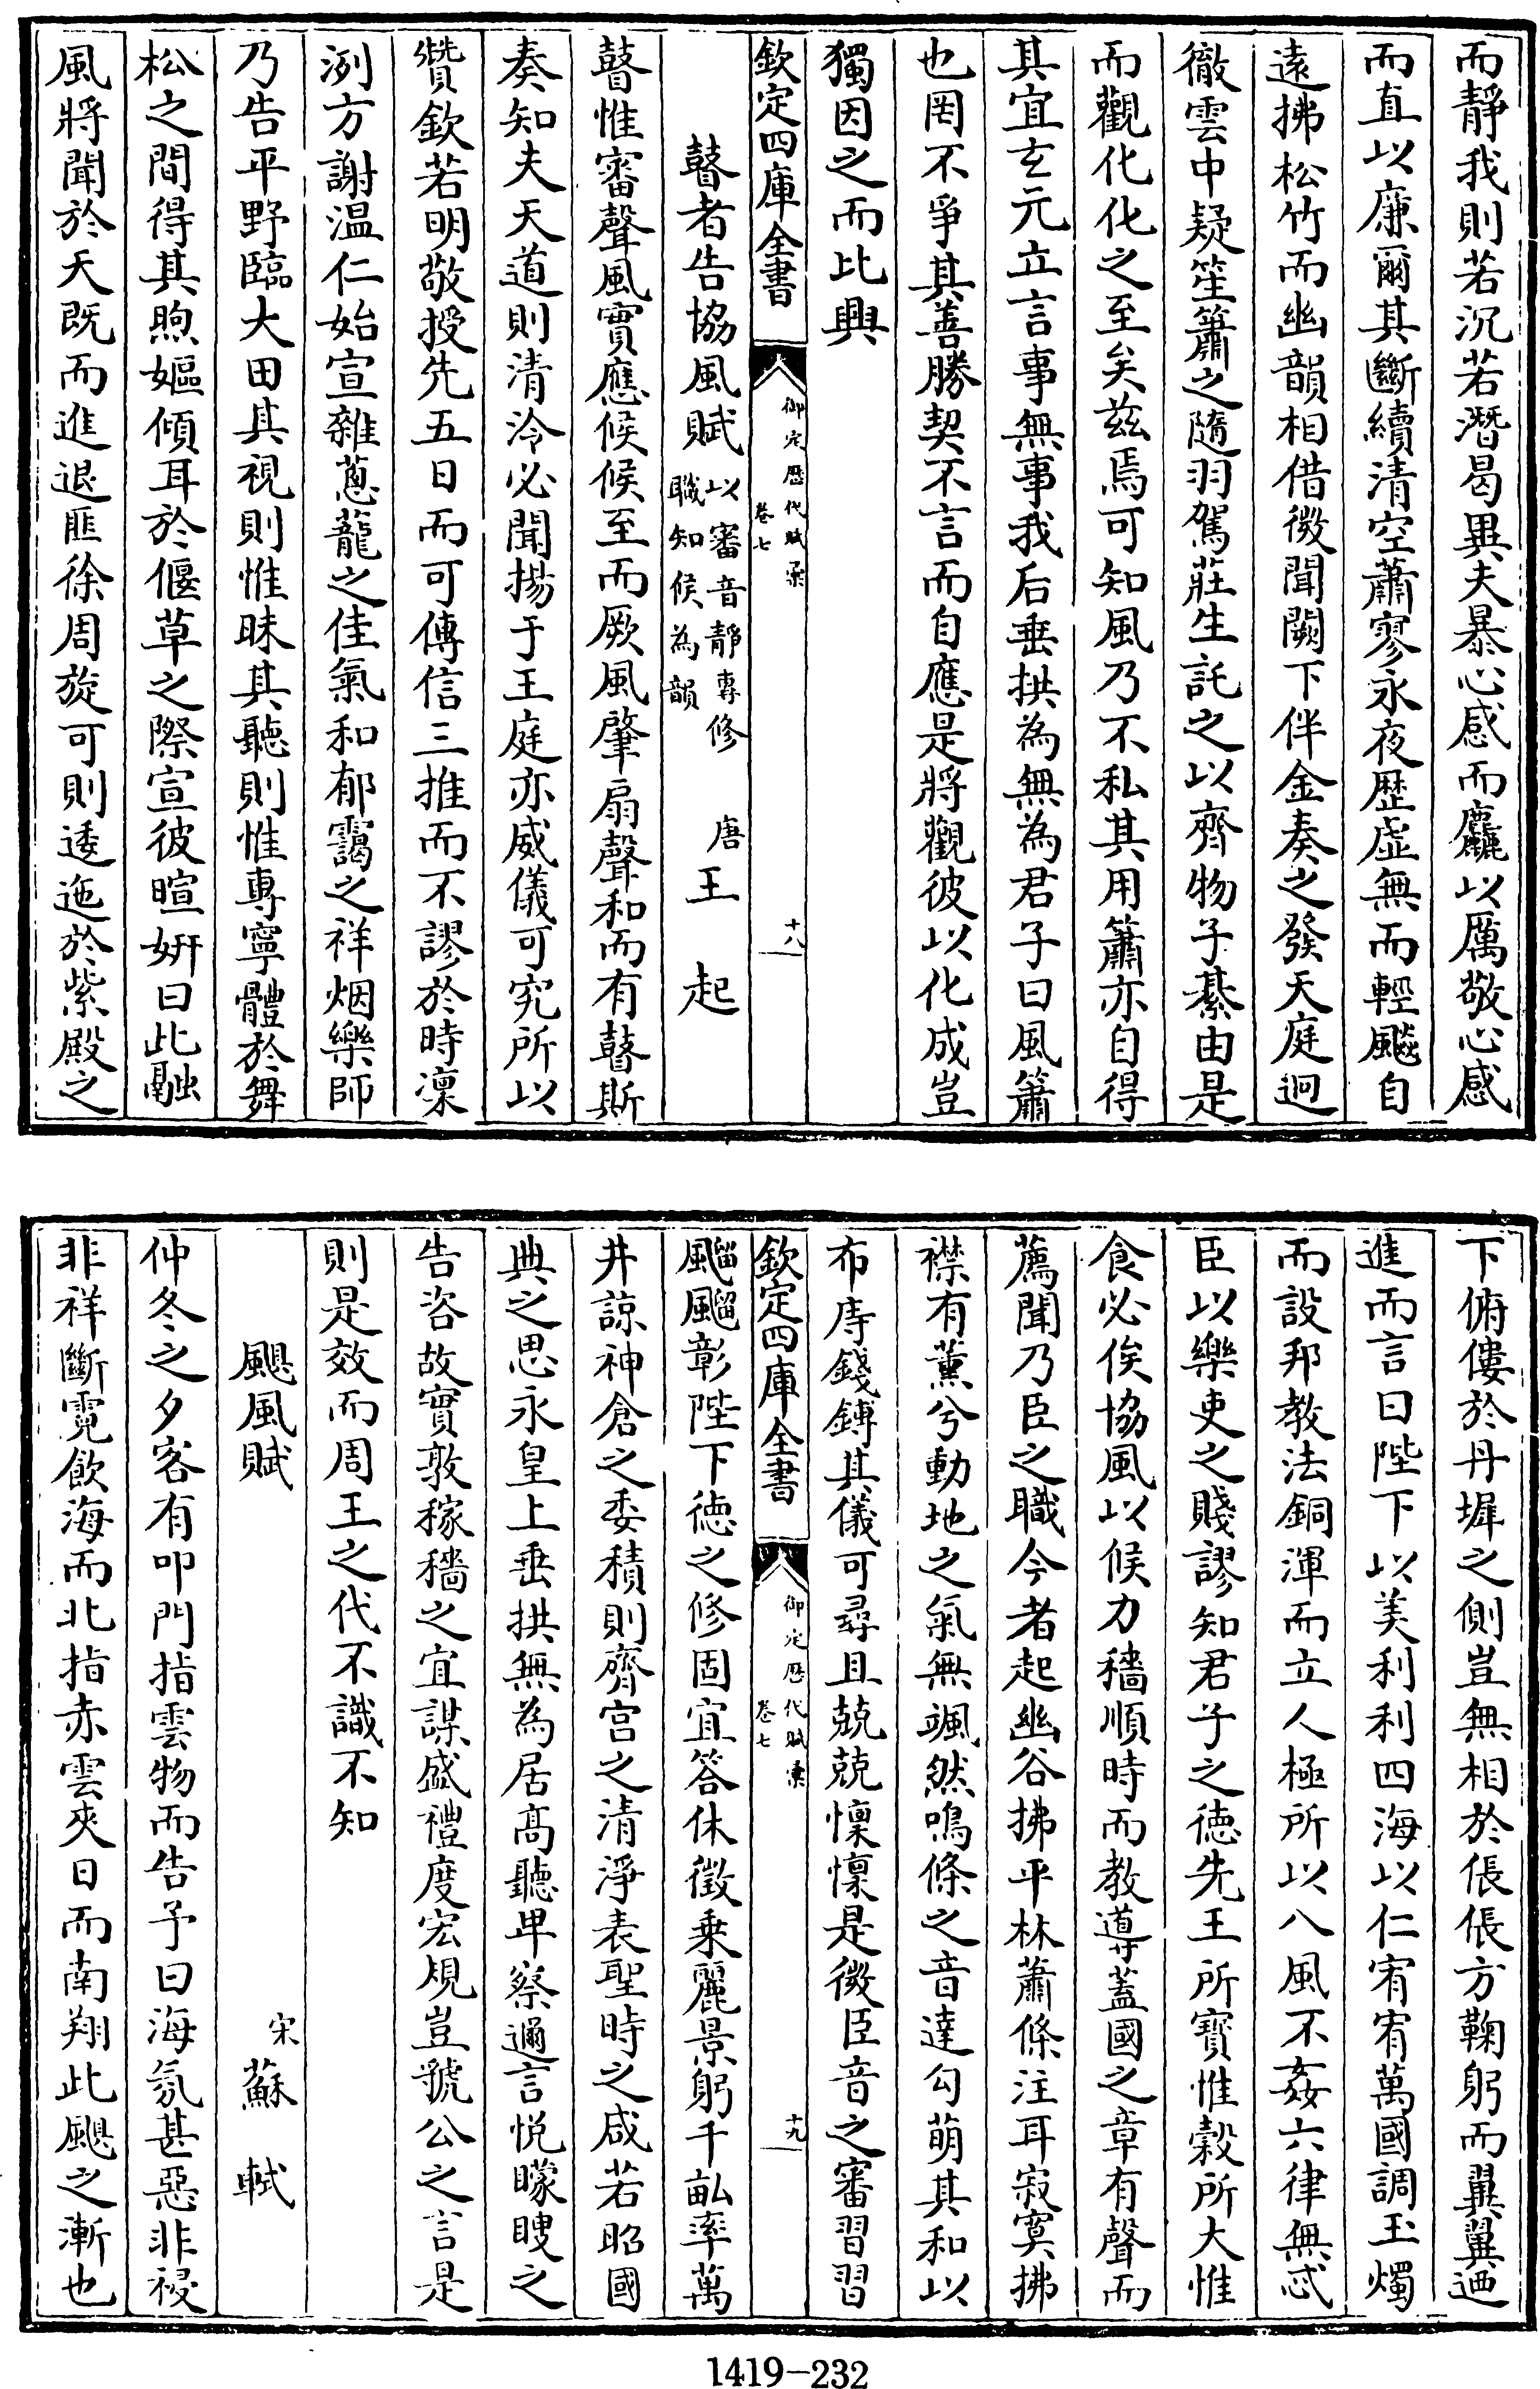 而靜我則若沉若潛曷異夫暴心感而麤以厲敬心感
而直以廉爾其斷續清空蕭寥永夜歴虛無而輕飈自
遠拂松竹而幽韻相借微聞闕下伴金奏之發天庭迥
徹雲中疑笙簫之隨羽駕莊生託之以齊物子綦由是
而觀化化之至矣茲焉可知風乃不私其用簫亦自得
其宜玄元立言事無事我后垂拱為無為君子曰風簫
也罔不爭其善勝契不言而自應是將觀彼以化成豈
獨因之而比興
欽定四庫全書
御定歴代賦彙
卷七
十八
瞽者告協風賦
以審音靜專修
職知候為韻
唐王起
瞽惟審聲風實應候候至而厥風肇扇聲和而有瞽斯
奏知夫天道則清泠必聞揚于王庭亦威儀可究所以
贊欽若明敬授先五日而可傳信三推而不謬於時凜
洌方謝温仁始宣雜蔥蘢之佳氣和郁靄之祥烟樂師
乃告平野臨大田其視則惟昧其聽則惟專寧體於舞
松之間得其煦嫗傾耳於偃草之際宣彼暄姸曰此融
風將聞於天既而進退匪徐周旋可則逶迤於紫殿之
下俯僂於丹墀之側豈無相於倀倀方鞠躬而翼翼迺
進而言曰陛下以美利利四海以仁宥宥萬國調玉燭
而設邦教法銅渾而立人極所以八風不姦六律無忒
臣以樂吏之賤謬知君子之徳先王所寳惟榖所大惟
食必俟協風以候力穡順時而教導蓋國之章有聲而
薦聞乃臣之職今者起幽谷拂平林蕭條注耳寂寞拂
襟有薰兮動地之氣無颯然鳴條之音達勾萌其和以
布庤錢鎛其儀可尋且兢兢懍懍是微臣音之審習習
欽定四庫全書
御定歴代賦彙
卷七
十九
飀飀彰陛下徳之修固宜答休徵乗麗景躬千畝率萬
井諒神倉之委積則齊宫之清淨表聖時之咸若昭國
典之思永皇上垂拱無為居髙聽卑察邇言悦矇瞍之
告咨故實敦稼穡之宜謀盛禮度宏規豈虢公之言是
則是效而周王之代不識不知
颶風賦
宋蘇軾
仲冬之夕客有叩門指雲物而告予曰海氛甚惡非祲
非祥斷霓飲海而北指赤雲夾日而南翔此颶之漸也
1419-232